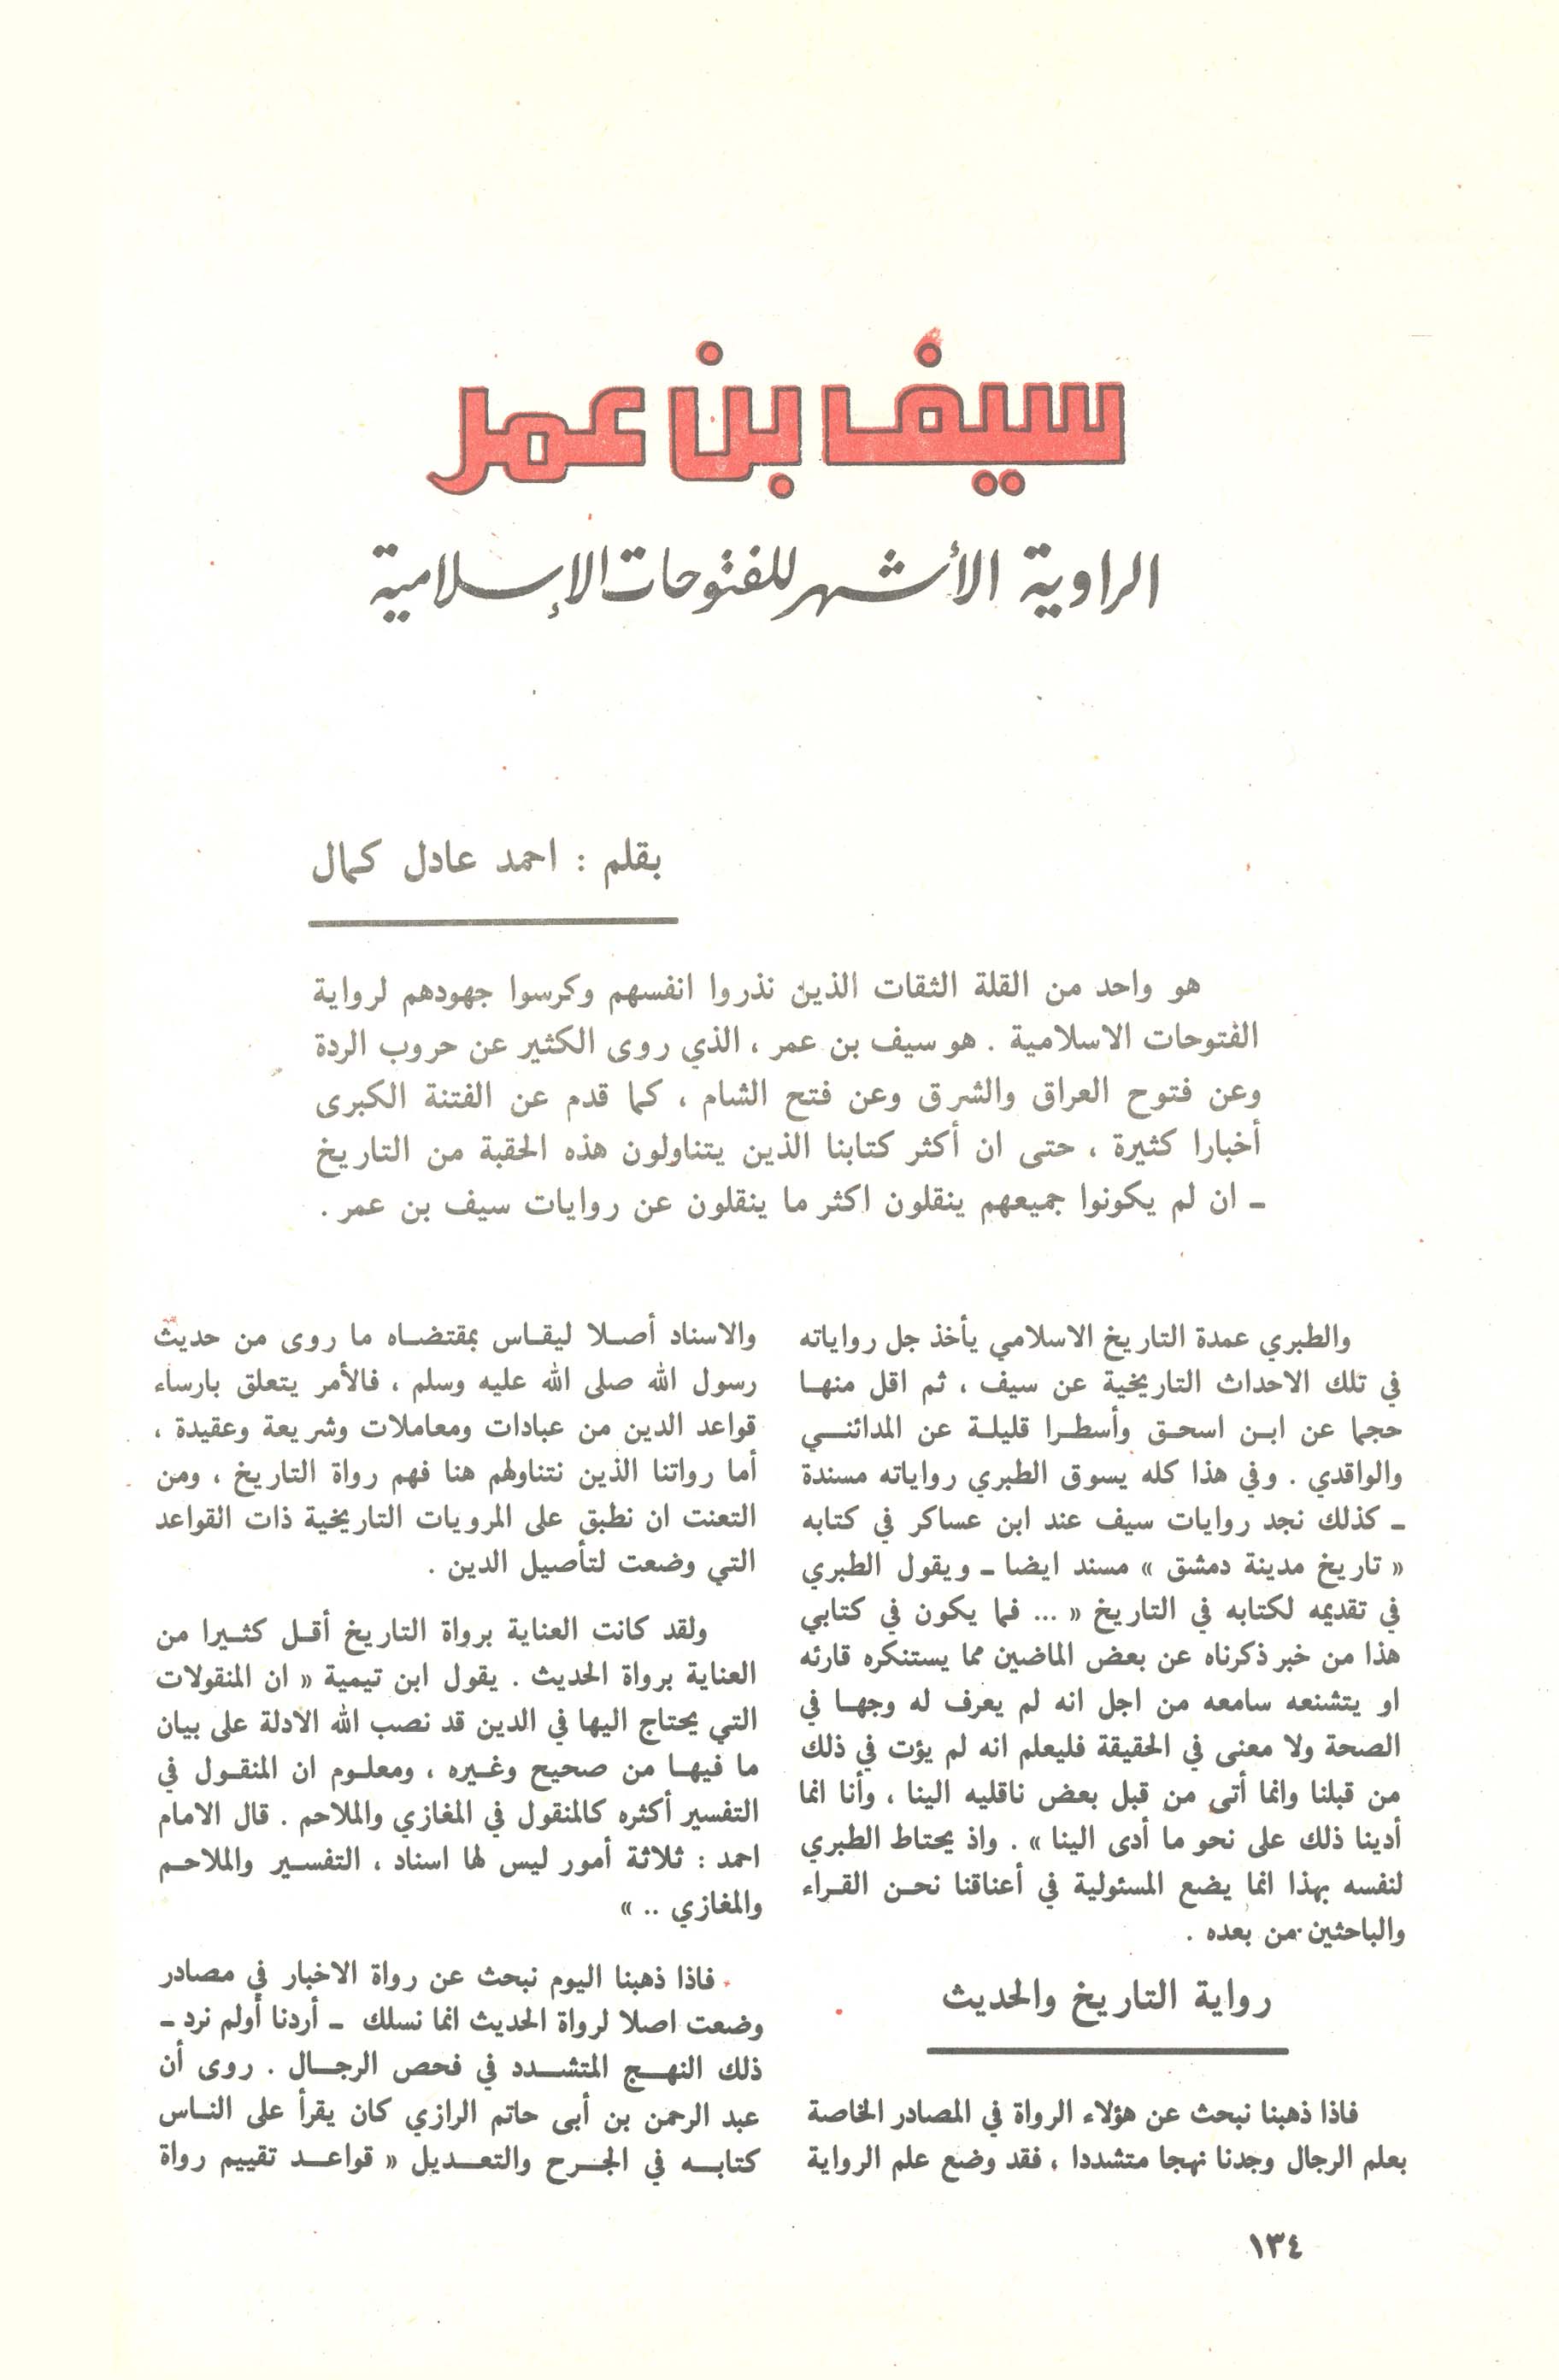 سيف بن عمر
الراوية الأشهر للفتوحات الإسلامية
بقلم : احمد عادل كمال
هو واحد من القلة الثقات الذين نذروا انفسهم وكرسوا جهودهم لرواية
الفتوحات الاسلامية . هو سيف بن عمر ، الذي روى الكثير عن حروب الردة
وعن فتوح العراق والشرق وعن فتح الشام ، كما قدم عن الفتنة الكبرى
أخبارا كثيرة ، حتى ان أكثر كتابنا الذين يتناولون هذه الحقبة من التاريخ
ـ ان لم يكونوا جميعهم ينقلون اكثر ما ينقلون عن روايات سيف بن عمر .
والطبري عمدة التاريخ الاسلامي يأخذ جل رواياته
في تلك الاحداث التاريخية عن سيف ، ثم اقل منها
حجما عن ابن اسحق وأسطرا قليلة عن المدائني
والواقدي . وفي هذا كله يسوق الطبري رواياته مسندة
ـ كذلك نجد روايات سيف عند ابن عساكر في كتابه
« تاريخ مدينة دمشق » مسند ايضا ـ ويقول الطبري
في تقديمه لكتابه في التاريخ « ... فما يكون في كتابي
هذا من خبر ذكرناه عن بعض الماضين مما يستنكره قارئه
او يتشنعه سامعه من اجل انه لم يعرف له وجها في
الصحة ولا معنى في الحقيقة فليعلم انه لم يؤت في ذلك
من قبلنا وانما أتى من قبل بعض ناقليه الينا ، وأنا انما
أدينا ذلك على نحو ما أدى الينا » . واذ يحتاط الطبري
لنفسه بهذا انما يضع المسئولية في أعناقنا نحن القراء
والباحثين من بعده .
رواية التاريخ والحديث
فاذا ذهبنا نبحث عن هؤلاء الرواة في المصادر الخاصة
بعلم الرجال وجدنا نهجا متشددا ، فقد وضع علم الرواية
والاسناد أصلا ليقاس بمقتضاه ما روى من حديث
رسول الله صلى الله عليه وسلم ، فالأمر يتعلق بارساء
قواعد الدين من عبادات ومعاملات وشريعة وعقيدة ،
أما رواتنا الذين نتناولهم هنا فهم رواة التاريخ ، ومن
التعنت ان نطبق على المرويات التاريخية ذات القواعد
التي وضعت لتأصيل الدين .
ولقد كانت العناية برواة التاريخ أقل كثيرا من
العناية برواة الحديث . يقول ابن تيمية « ان المنقولات
التي يحتاج اليها في الدين قد نصب الله الادلة على بيان
ما فيها من صحيح وغيره ، ومعلوم ان المنقول في
التفسير أكثره كالمنقول في المغازي والملاحم . قال الامام
احمد : ثلاثة أمور ليس لها اسناد ، التفسير والملاحم
والمغازي .. »
فاذا ذهبنا اليوم نبحث عن رواة الاخبار في مصادر
وضعت اصلا لرواة الحديث انما نسلك ـ أردنا أولم نرد ـ
ذلك النهج المتشدد في فحص الرجال . روى أن
عبد الرحمن بن أبى حاتم الرازي كان يقرأ على الناس
كتابه في الجرح والتعديل « قواعد تقييم رواة
١٣٤